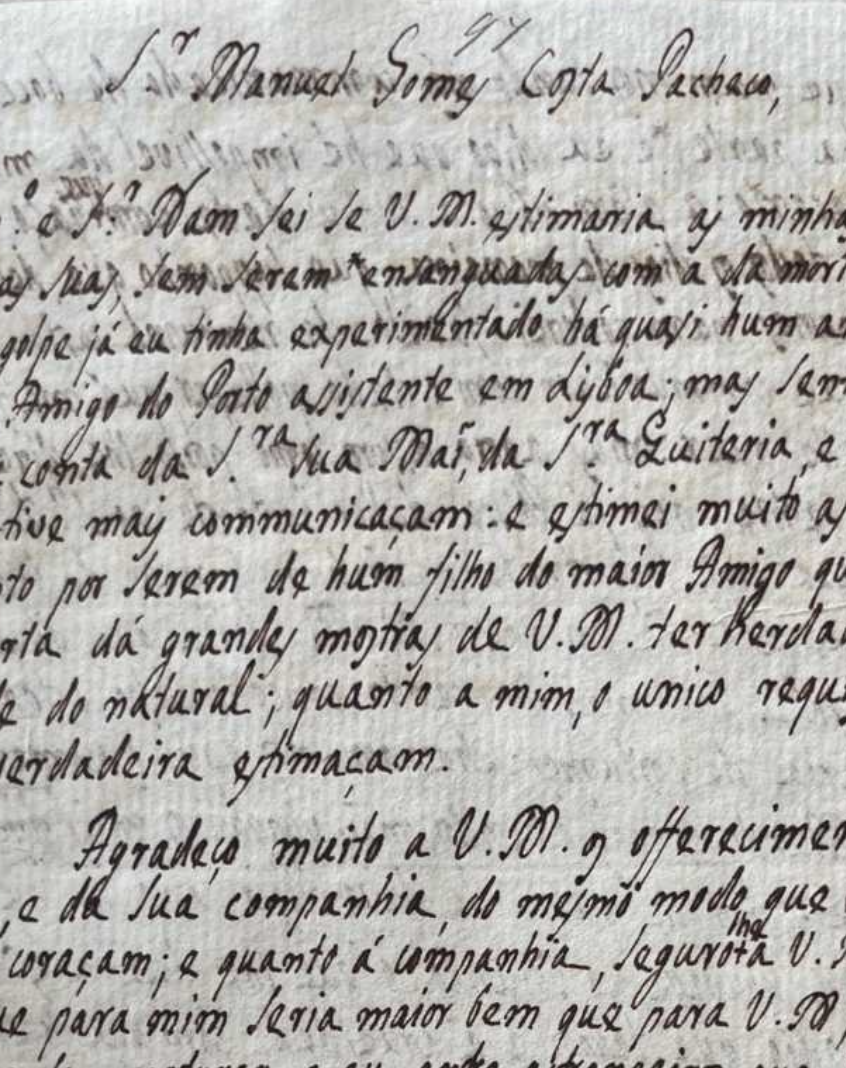 97
S.r Manuel Gomes Costa Pacheco,
.o e A.o Nam sei se V. M. estimaria as minhas
as suas, sem serem ensanguadas com a da mort
golpe já eu tinha experimentado há quasi hum an
Amigo do Porto assistente em Lisboa; mas sem
conta da S.ra sua Mai, da S.ra Quiteria, e
tive mais communicaçam: e estimei muito as
to por serem de hum filho do maior Amigo qu
rta dá grandes mostras de V. M. ter herda
e do natural; quanto a mim, o unico requi
verdadeira estimaçam.
Agradeço muito a V. M. os offerecimen
, e da sua companhia, do mesmo modo, que
coraçam; e quanto á companhia, V.
ue para mim seria maior bem que para V. M,